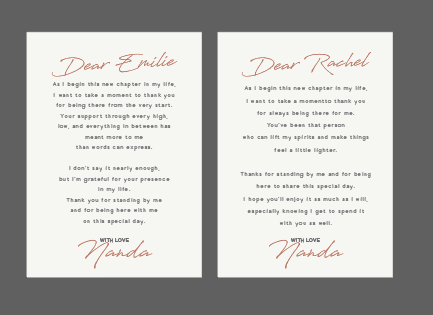 Dear Emilie
As I begin this new chapter in my life,
I want to take a moment to thank you
for being there from the very start.
Your support through every high,
low, and everything in between has
meant more to me
than words can express.
I don't say it nearly enough,
but I'm grateful for your presence
in my life.
Thank you for standing by me
and for being here with me
on this special day.
WITH LOVE
Nanda
Dear Rachel
As I begin this new chapter in my life,
I want to take a momentto thank you
for always being there for me.
You've been that person
who can lift my spirits and make things
feel a little lighter.
Thanks for standing by me and for being
here to share this special day.
I hope you'll enjoy it as much as I will,
especially knowing I get to spend it
with you as well.
WITH LOVE
Nanda